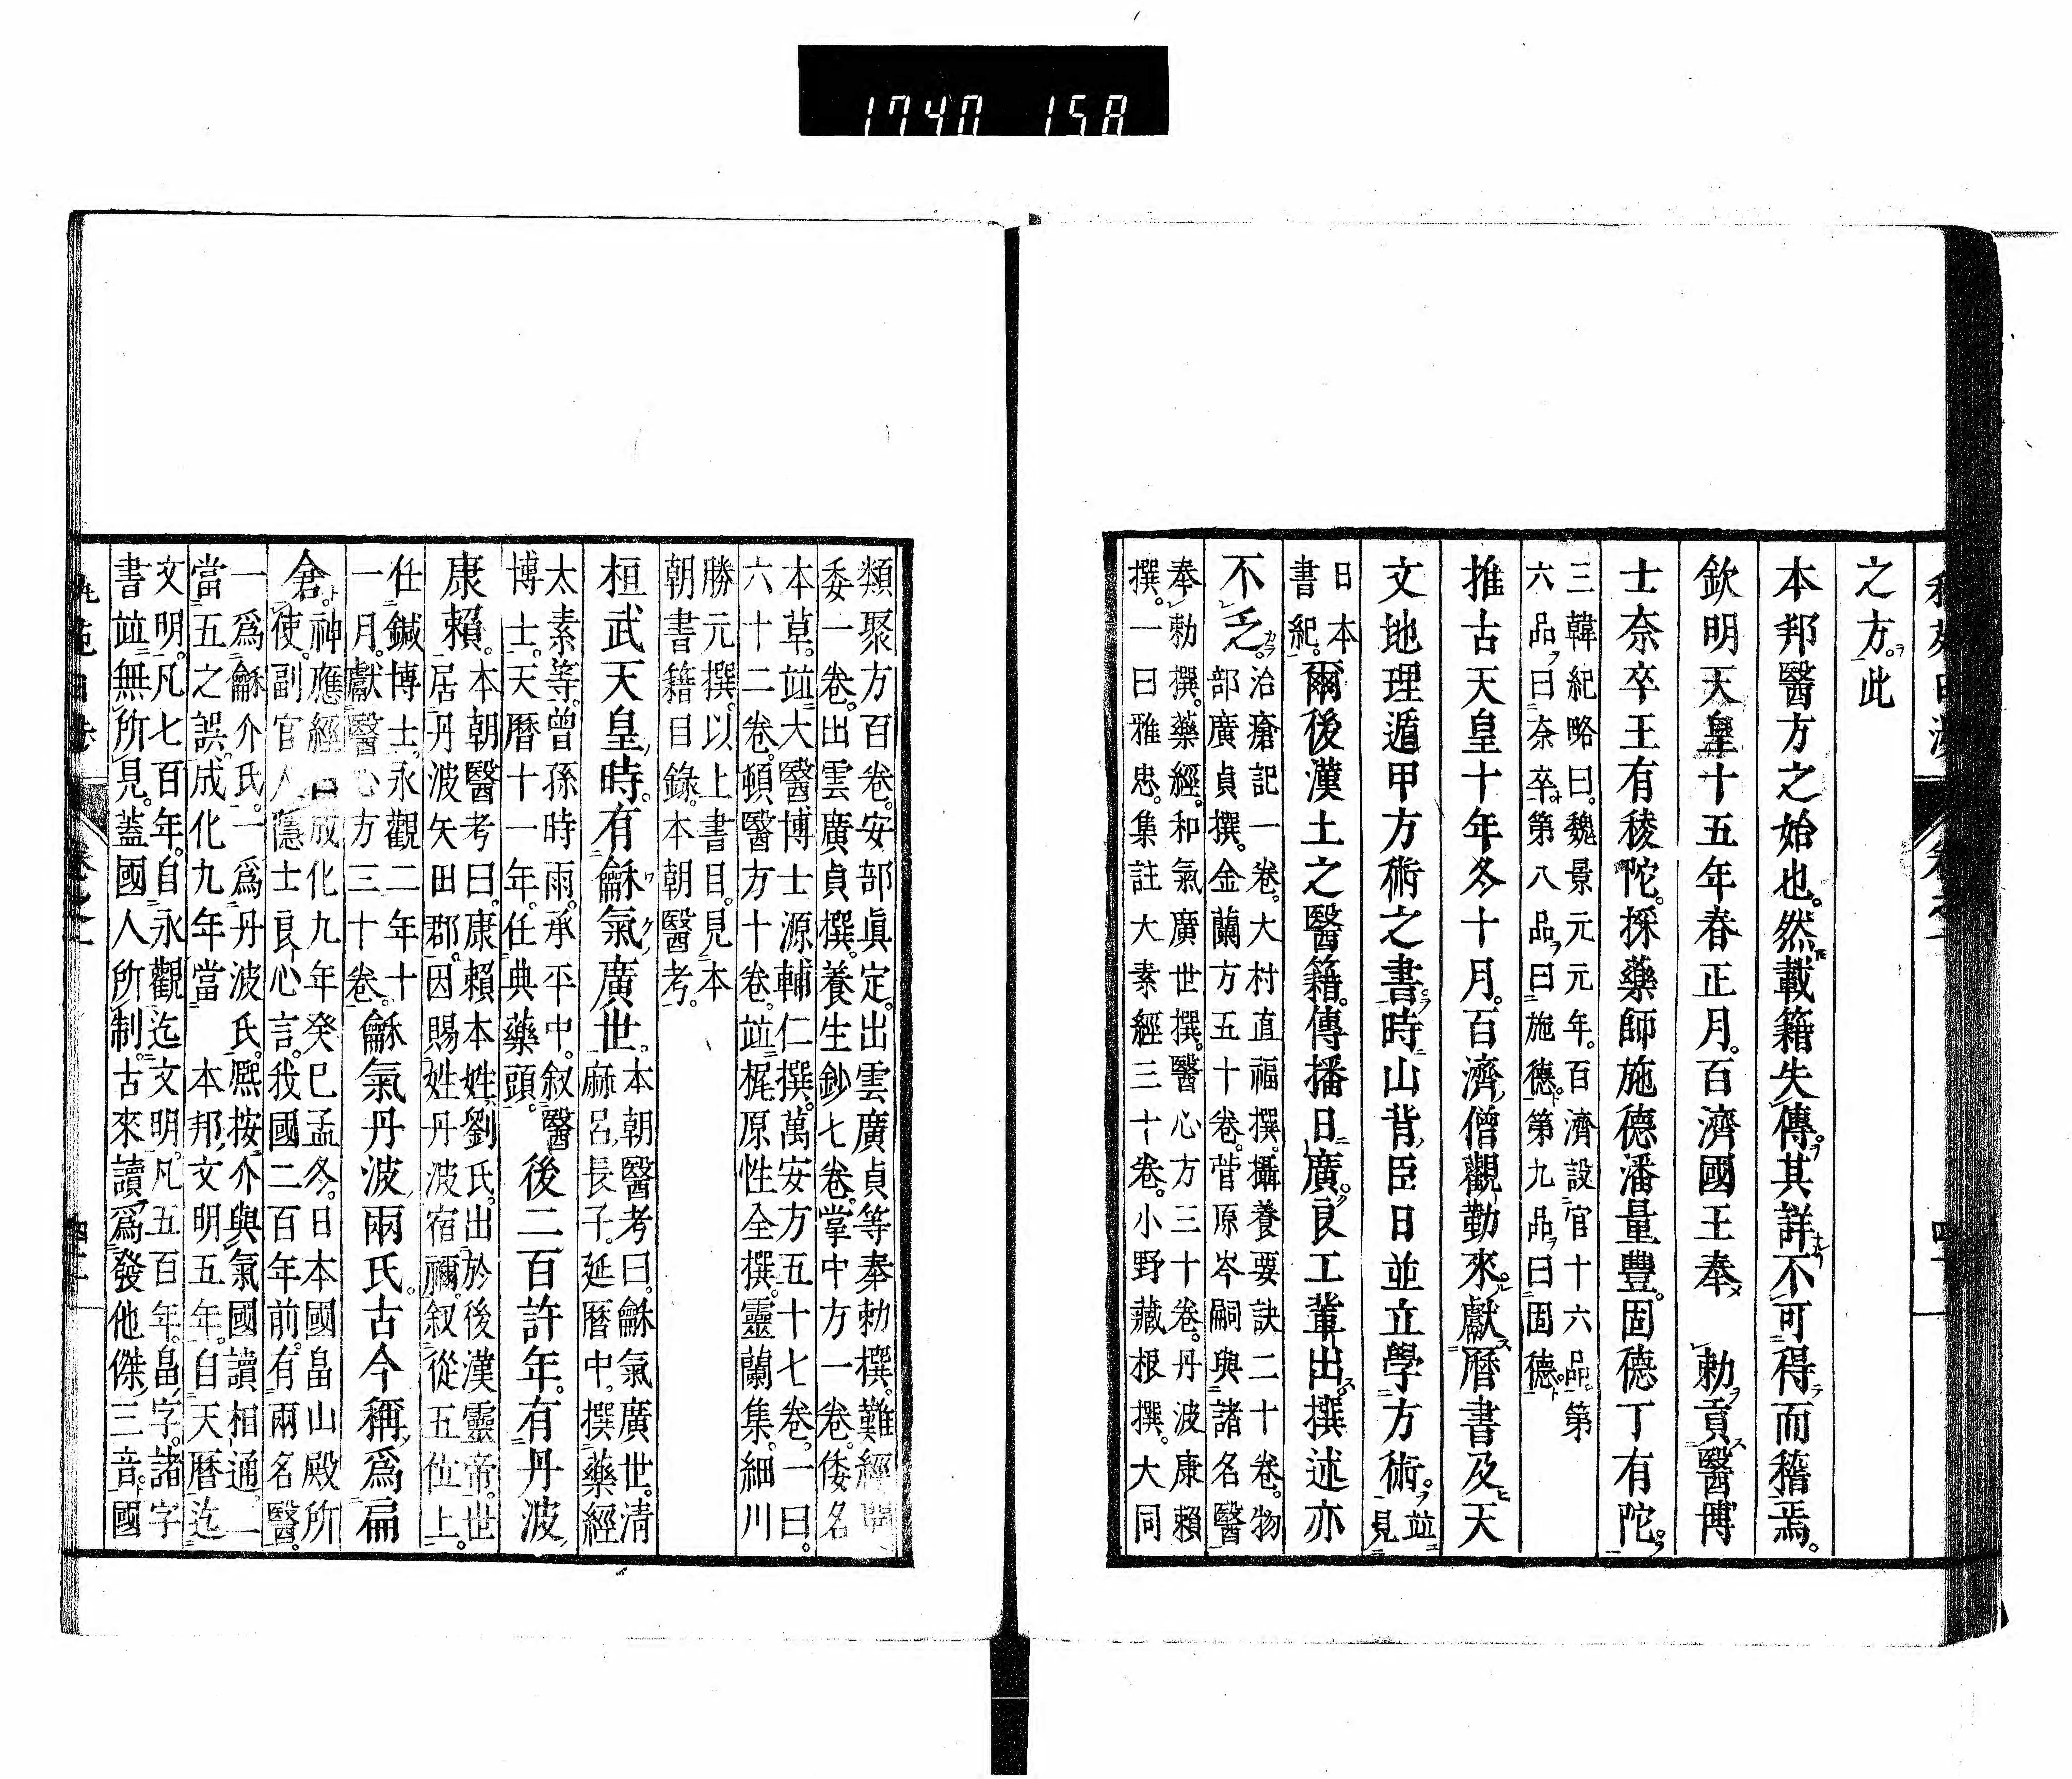 1740 158
之方此
本邦醫方之始也。然載籍失傳。其詳不可得而稽焉。
欽明天皇十五年春正月。百濟國王奉 勅貢醫博
士奈卒王有稜陀。採藥師施德潘量豐。固德丁有陀。
三韓紀略曰。魏景元元年。百濟設官十六品。第
六品曰奈卒。第八品曰施德。第九品曰固德。
推古天皇十年冬十月。百濟僧觀勤來。獻曆書及天
文地理遁甲方術之書。時山背臣日並立學方術。竝見
日本
書紀。爾後漢土之醫籍。傳播日廣。良工輩出。撰述亦
不乏。治瘡記一卷。大村直福撰。攝養要訣二十卷。物
部廣貞撰。金蘭方五十卷。菅原岑嗣與諸名醫
奉勅撰。藥經。和氣廣世撰。醫心方三十卷。丹波康賴
撰。一曰雅忠。集註大素經三十卷。小野藏根撰。大同
類聚方百卷。安部眞定。出雲廣貞等奉勅撰。難經開
委一卷。出雲廣貞撰。養生鈔七卷。掌中方一卷。倭名
本草。竝大醫博士源輔仁撰。萬安方五十七卷。一曰。
六十二卷。頓醫方十卷。竝梶原性全撰。靈蘭集。細川
勝元撰。以上書目。見本
朝書籍目錄。本朝醫考。
桓武天皇時。有龢氣廣世。本朝醫考曰。龢氣廣世。清
麻呂長子。延曆中。撰藥經
太素等。曾孫時雨。承平中。叙醫
博士。天曆十一年。任典藥頭。後二百許年。有丹波
康賴。本朝醫考曰。康賴本姓劉氏。出於後漢靈帝。世
居丹波矢田郡。因賜姓丹波宿禰。叙從五位上。
任鍼博士。永觀二年十
一月。獻醫心方三十卷。龢氣丹波兩氏。古今稱爲扁
倉。神應經曰成化九年癸巳孟冬。日本國畠山殿所
使。副官人隱士良心言。我國二百年前。有兩名醫。
一爲龢介氏。一爲丹波氏。熙按。介與氣國讀相通。一
當五之誤。成化九年當 本邦文明五年。自天曆迄
文明。凡七百年。自永觀迄文明。凡五百年。畠字。諸字
書竝無所見。蓋國人所制。古來讀爲發他傑三音。國